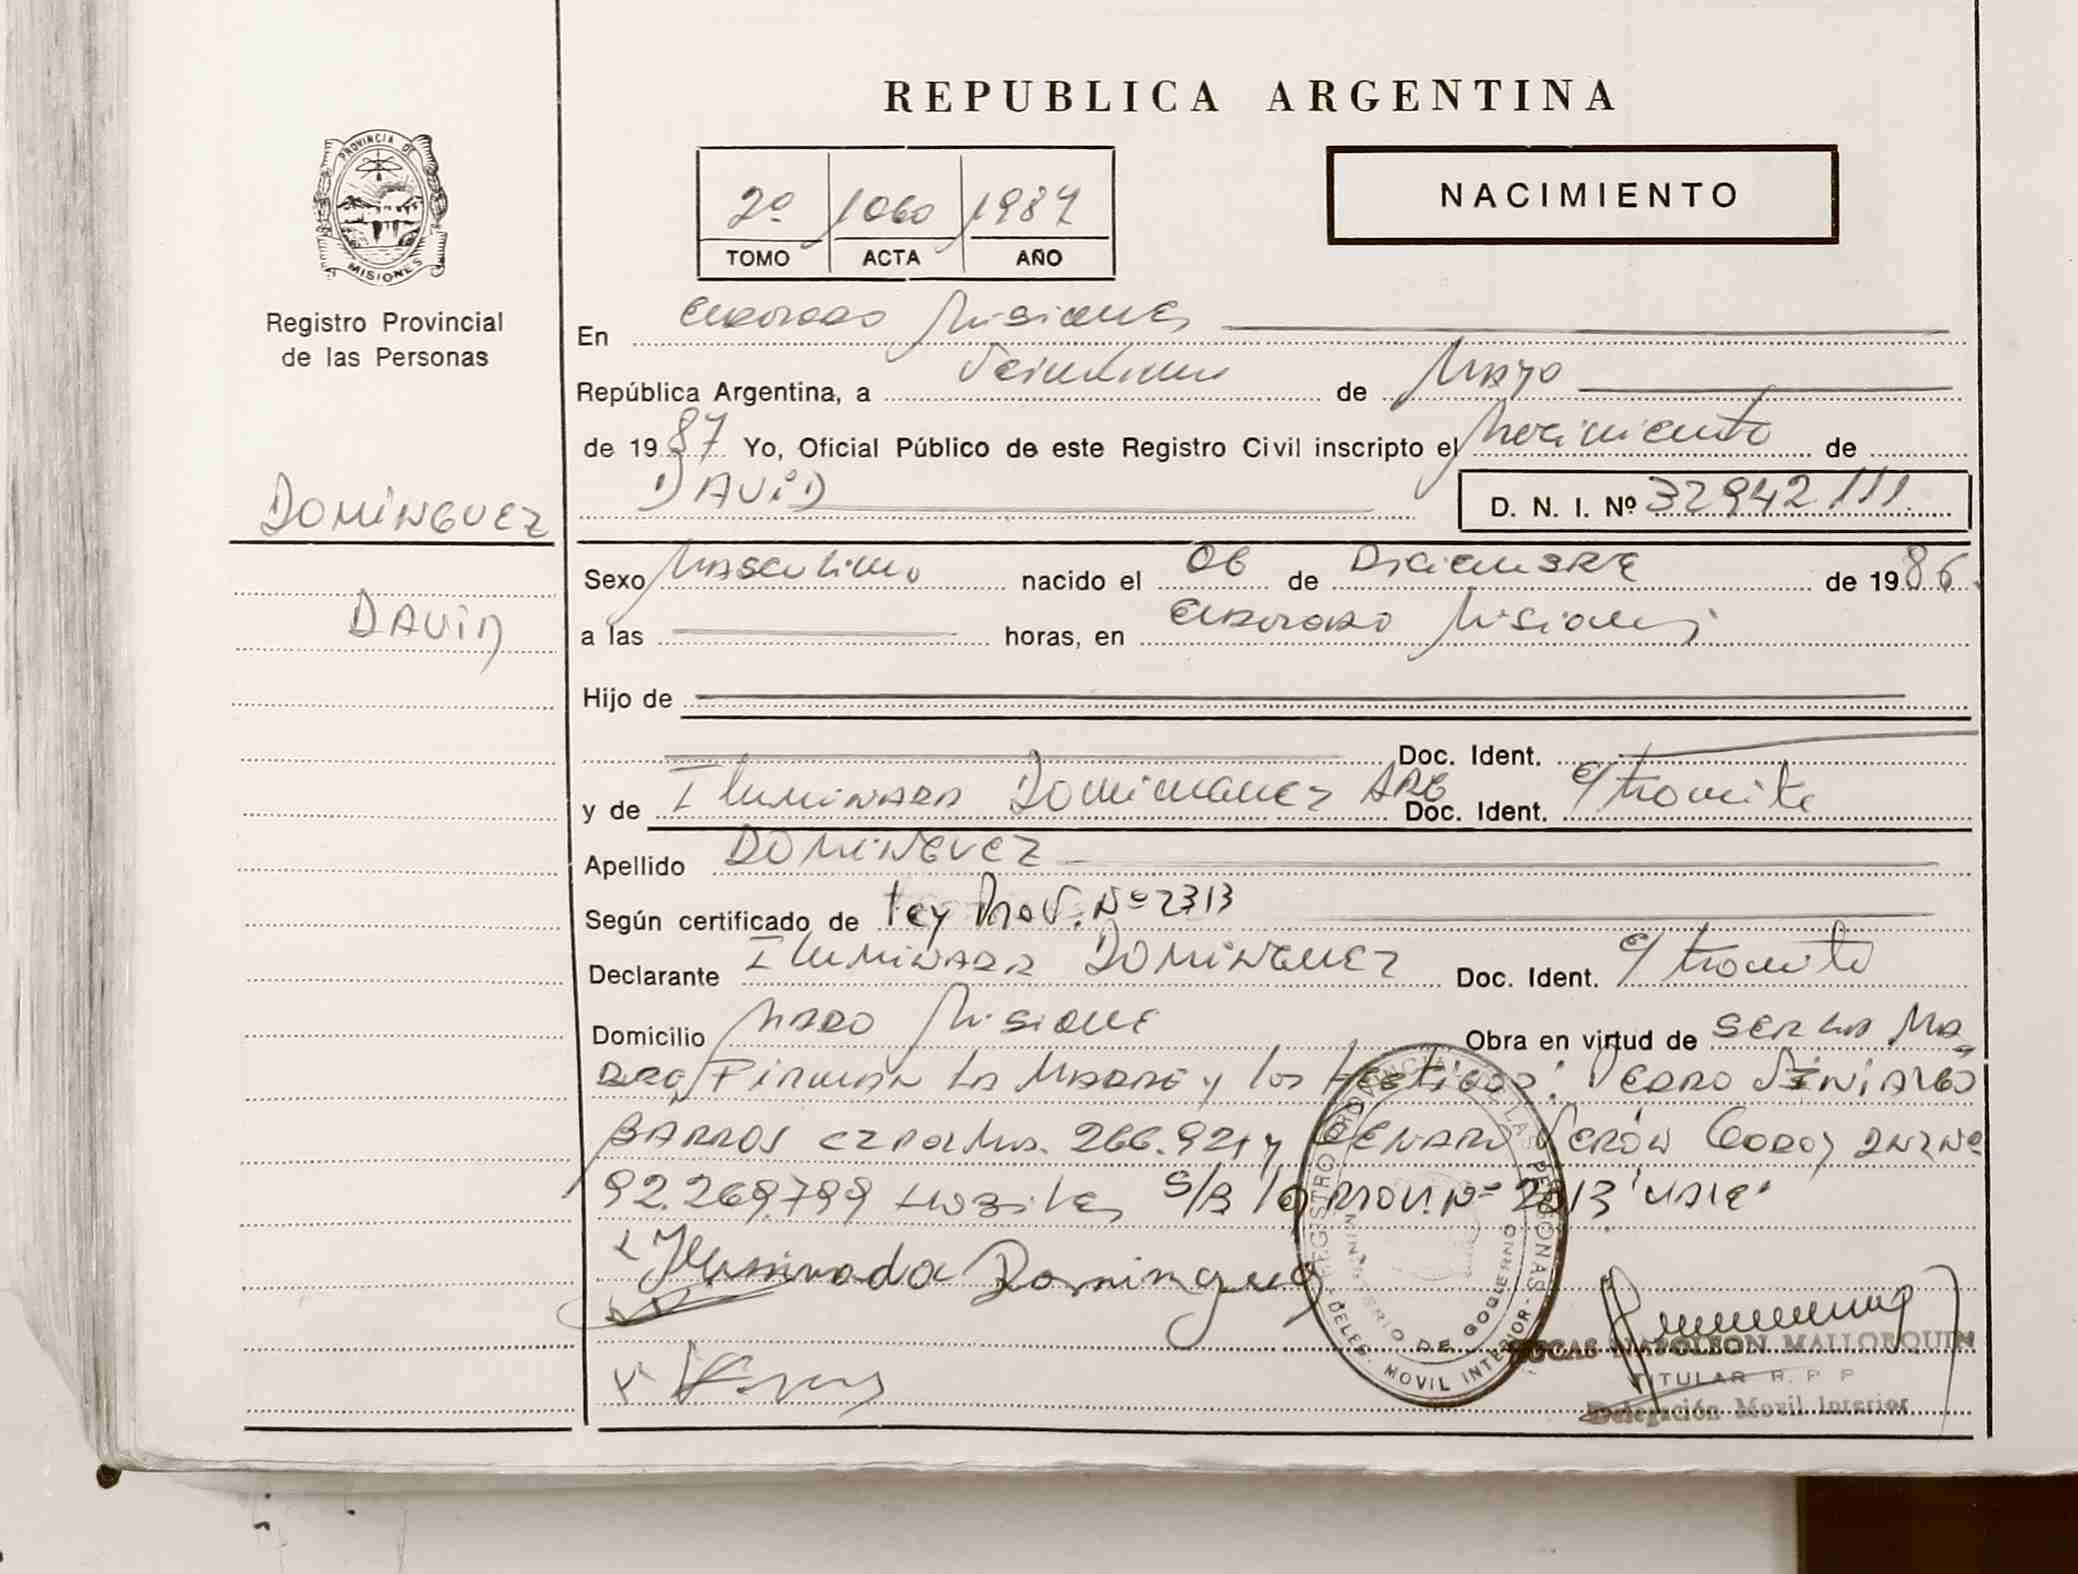 REPUBLICA ARGENTINA
PROVINCIA DE
MISIONES
Registro Provincial
de las Personas
2º 1060 1987
TOMO ACTA AÑO
NACIMIENTO
En Eldorado Misiones
República Argentina, a de Mayo
de 1987 Yo, Oficial Público de este Registro Civil inscripto el Nacimiento de
DAViD D. N. I. Nº 32942111
DOMINGUEZ
Sexo Masculino nacido el 06 de Diciembre de 1986
DAViD
a las horas, en Eldorado Misiones
Hijo de
Doc. Ident.
y de Iluminada Dominguez ARG Doc. Ident. e/tramite
Apellido DOMINGUEZ
Según certificado de Ley Prov. Nº 2313
Declarante Iluminada DOMINGUEZ Doc. Ident. e/tramite
Domicilio Misiones Obra en virtud de ser la Ma-
dre Firman la Madre y los testigos: Pedro
Barros 266.921 y Genaro Cerón Godoy DNI Nº
92.269.799 S/B ley Prov. Nº 2313 "VALE"
Iluminada Dominguez
REGISTRO PROVINCIAL DE LAS PERSONAS
MINISTERIO DE GOBIERNO
DELEG. MOVIL INTERIOR
LUCAS NAPOLEON MALLORQUIN
TITULAR R. P. P
Delegación Movil Interior